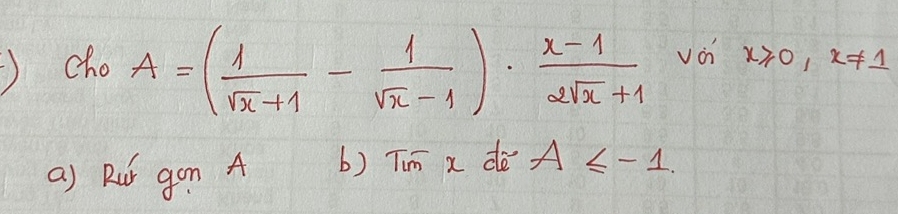 ) Cho A = ( 1/(√x + 1) − 1/(√x − 1) ) · (x − 1)/(2√x + 1) với x ≥ 0, x ≠ 1
a) Rút gọn A b) Tìm x để A ≤ -1.